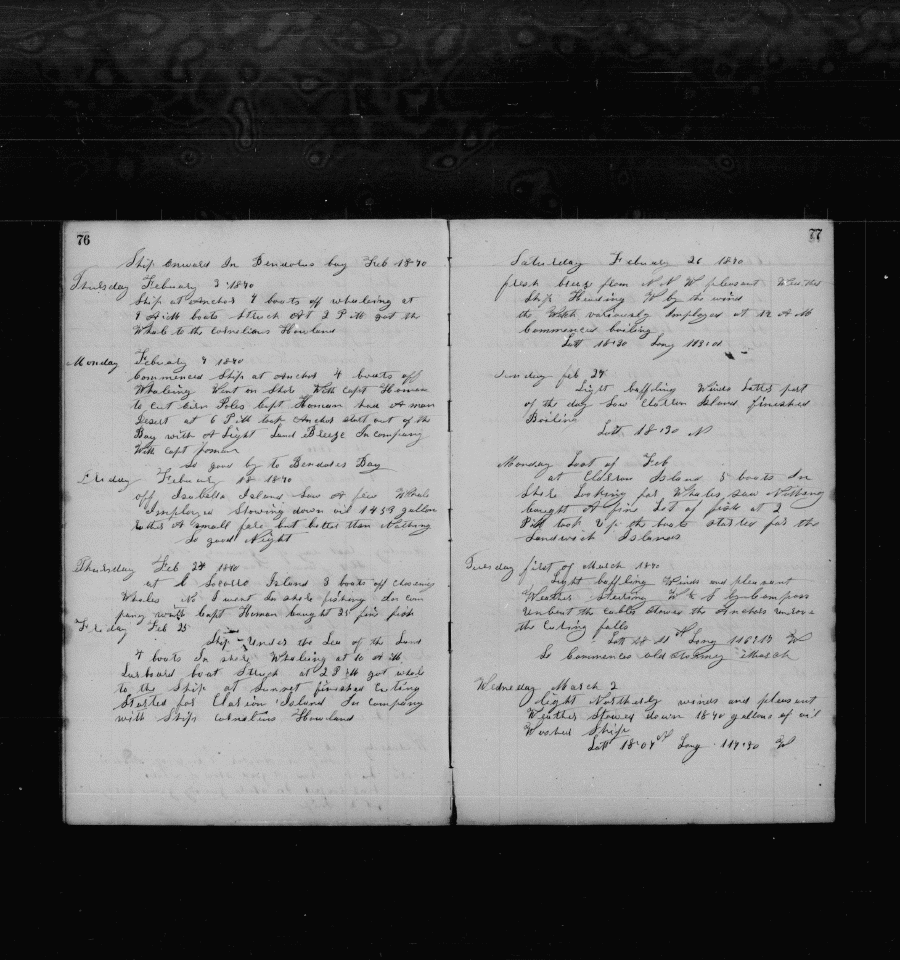 76
Ship Onward In Bendotus bay Feb 1870
Thursday Febuary 3 1870
Ship at Anchor 4 boats off whaleing at
9 A M boats Struck At 2 P M got the
Whale to the Cornelious Howland
Monday Febuary 7 1870
Commenced Ship at Anchor 4 boats off
Whaleing Went on Shore With Capt Homan
to cut Poles Capt Homan had A man
Desert at 6 P M took Anchor start out of the
Bay with A Light Land Breeze In company
With Capt Homan
So good by to Bendotes Bay
Friday Febuary 18 1870
off Isabella Island Saw A few Whales
Imployed Stowing down oil 1459 gallon
rather A small fare but better than Nothing
So good Night
Thursday Feb 24 1870
at Socorro Island 3 boats off chaseing
Whales No I went In shore fishing In com
pany with Capt Homan caught 25 fine fish
Friday Feb 25
Ship Under the Lea of the Land
4 boats In shore Whaleing at 10 A M
Larboard boat Struck at 2 P M got whale
to the Ship at Sunset finished Cuting
Started for Clarion Island In Company
with Ship Cornelius Howland
77
Saturday Febuary 26 1870
fresh breeze from N N W pleasant Weather
Ship Heading W by the wind
the Watch variously Imployed at 12 A M
Commenced boiling
Latt 18=30 Long 113=01
Sunday feb 27
Light baffling Winds Latter part
of the day Saw Clarion Island finished
Boiling
Latt 18=30 N
Monday Last of Feb
at Clarion Island 5 boats In
Shore Looking for Whales saw Nothing
caught A fine Lot of fish at 2
P M took Up the boats started for the
Sandwich Islands
Tuesday first of March 1870
Light baffling Winds and pleasant
Weather Steering W & S by Compass
Unbent the cables Stowed the Anchors
the Cuting falls
Long W
So Commences old Stormey March
Wednesday March 2
light Northerly winds and pleasant
Weather Stowed down 1840 gallons of oil
Washed Ship
Latt 18=04 N Long 117=30 W